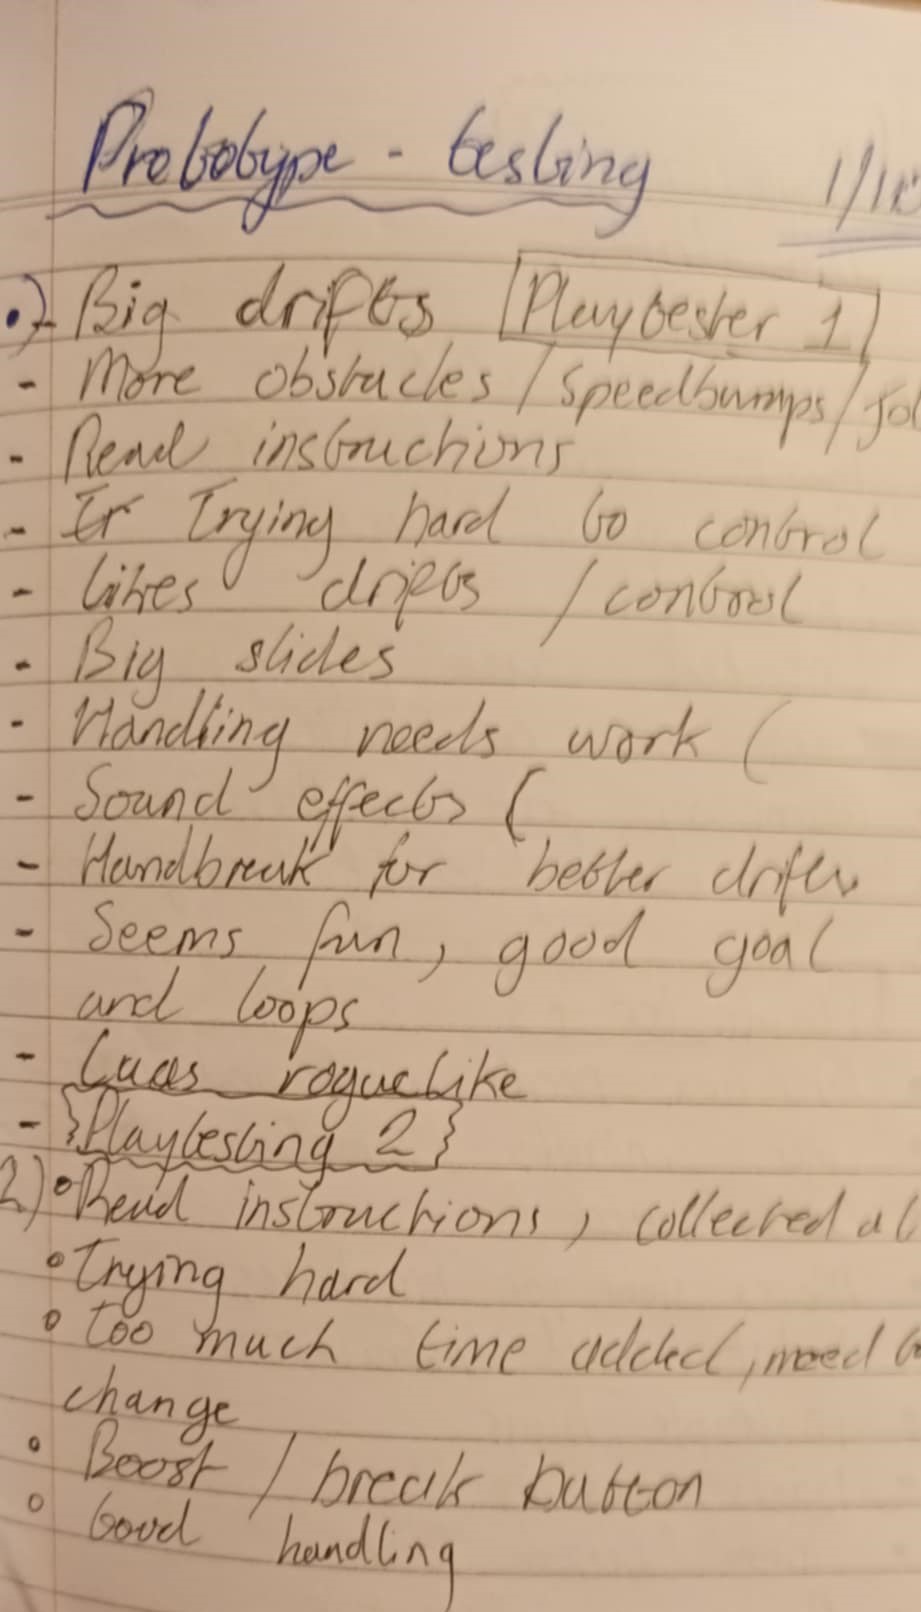 Prototype - testing 1/10
.) - Big drifts [Playtester 1]
- More obstacles / Speedbumps /
- Read instructions
- Trying hard to control
- likes drifts / control
- Big slides
- Handling needs work (
- Sound effects (
- Handbreak for better drifts
- Seems fun, good goal
and loops
- roguelike
- {Playtesting 2}
2) • Read instructions, collected al
• Trying hard
• too much time added, need
change
• Boost / break button
• Good handling